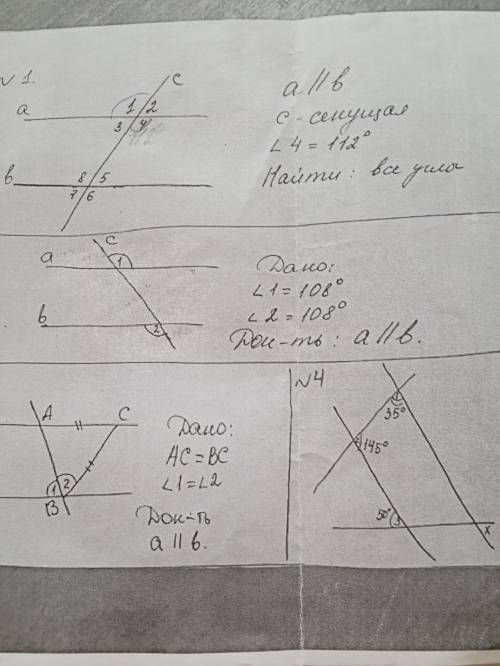 №1.
c
a
1 2
3 4
112°
b
8 5
7 6
a || b
c - секущая
∠4 = 112°
Найти: все углы
c
a
1
b
2
Дано:
∠1 = 108°
∠2 = 108°
Док-ть: a || b.
A C
1 2
B
Дано:
AC = BC
∠1 = ∠2
Док-ть
a || b.
№4
35°
145°
50°
x